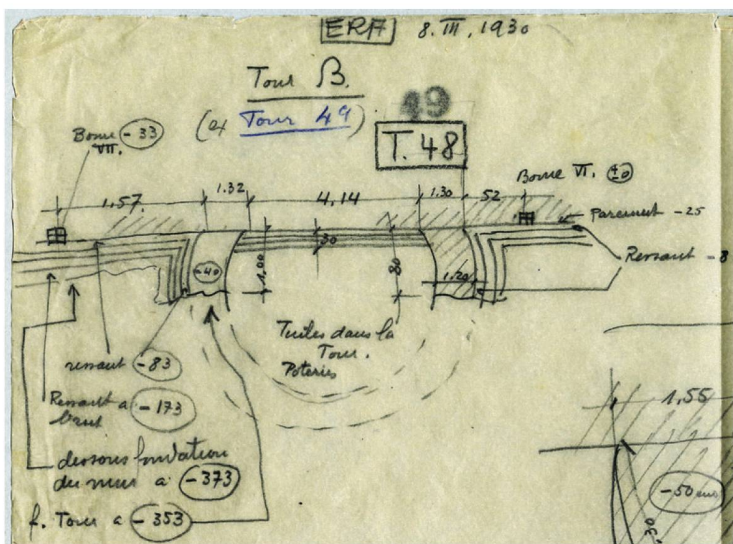 ERA 8. III. 1930
Tour B.
49
(ex Tour 49)
T. 48
Borne VII. -33
Borne VI. ±0
1.57 1.32 4.14 1.30 52
Parement -25
Ressaut -8
30
-40
1,00
80
1.20
Tuiles dans la
Tour.
Poteries
ressaut -83
Ressaut a -173
brut
dessous fondation
du mur a -373
f. Tour a -353
1,55
-50 env